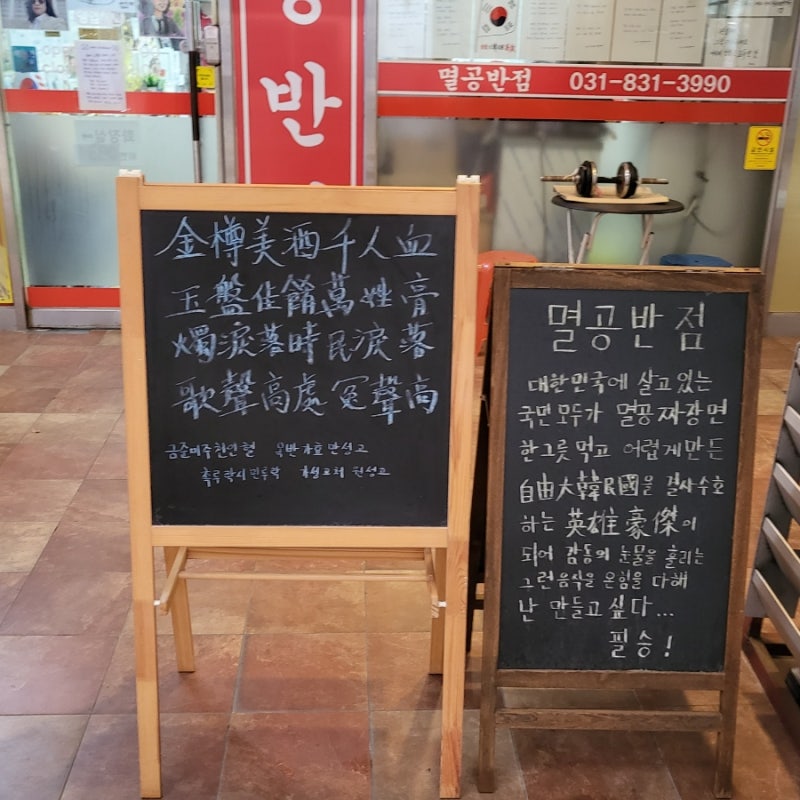 반
멸공반점 031-831-3990
金樽美酒千人血
玉盤佳餚萬姓膏
燭淚落時民淚落
歌聲高處冤聲高
금준미주천인혈 옥반가효만성고
촉루락시민루락 가성고처 원성고
멸공반점
대한민국에 살고있는
국민모두가 멸공짜장면
한그릇먹고 어렵게만든
自由大韓民國을 결사수호
하는 英雄豪傑이
되어 감동의 눈물을 흘리는
그런음식을 온힘을 다해
난 만들고싶다...
필승!